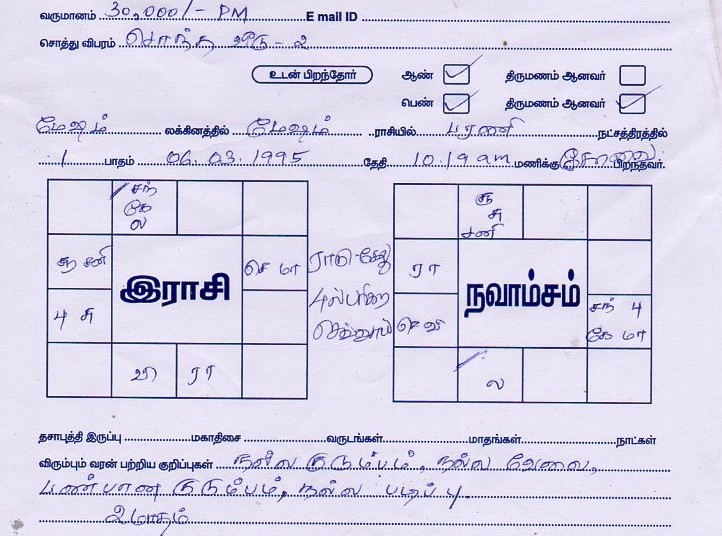 வருமானம் 30,000/- PM E mail ID
சொத்து விபரம் சொந்த வீடு - 2
உடன் பிறந்தோர் ஆண் திருமணம் ஆனவர்
பெண் திருமணம் ஆனவர்
மேஷம் லக்கினத்தில் மேஷம் ராசியில் பரணி நட்சத்திரத்தில்
1 பாதம் 06.03.1995 தேதி 10.19 am மணிக்கு கோவை பிறந்தவர்.
சந்
கே
ல
சூ சனி
செ மா
பு சு
இராசி
வி ரா
ராகு - கேது
சூ
சு
சனி
ரா
செ வி
நவாம்சம்
சந் பு
கே மா
ல
தசாபுத்தி இருப்பு மகாதிசை வருடங்கள் மாதங்கள் நாட்கள்
விரும்பும் வரன் பற்றிய குறிப்புகள் நல்ல குடும்பம், நல்ல வேலை,
பண்பான குடும்பம், நல்ல படிப்பு.
2 மாதம்